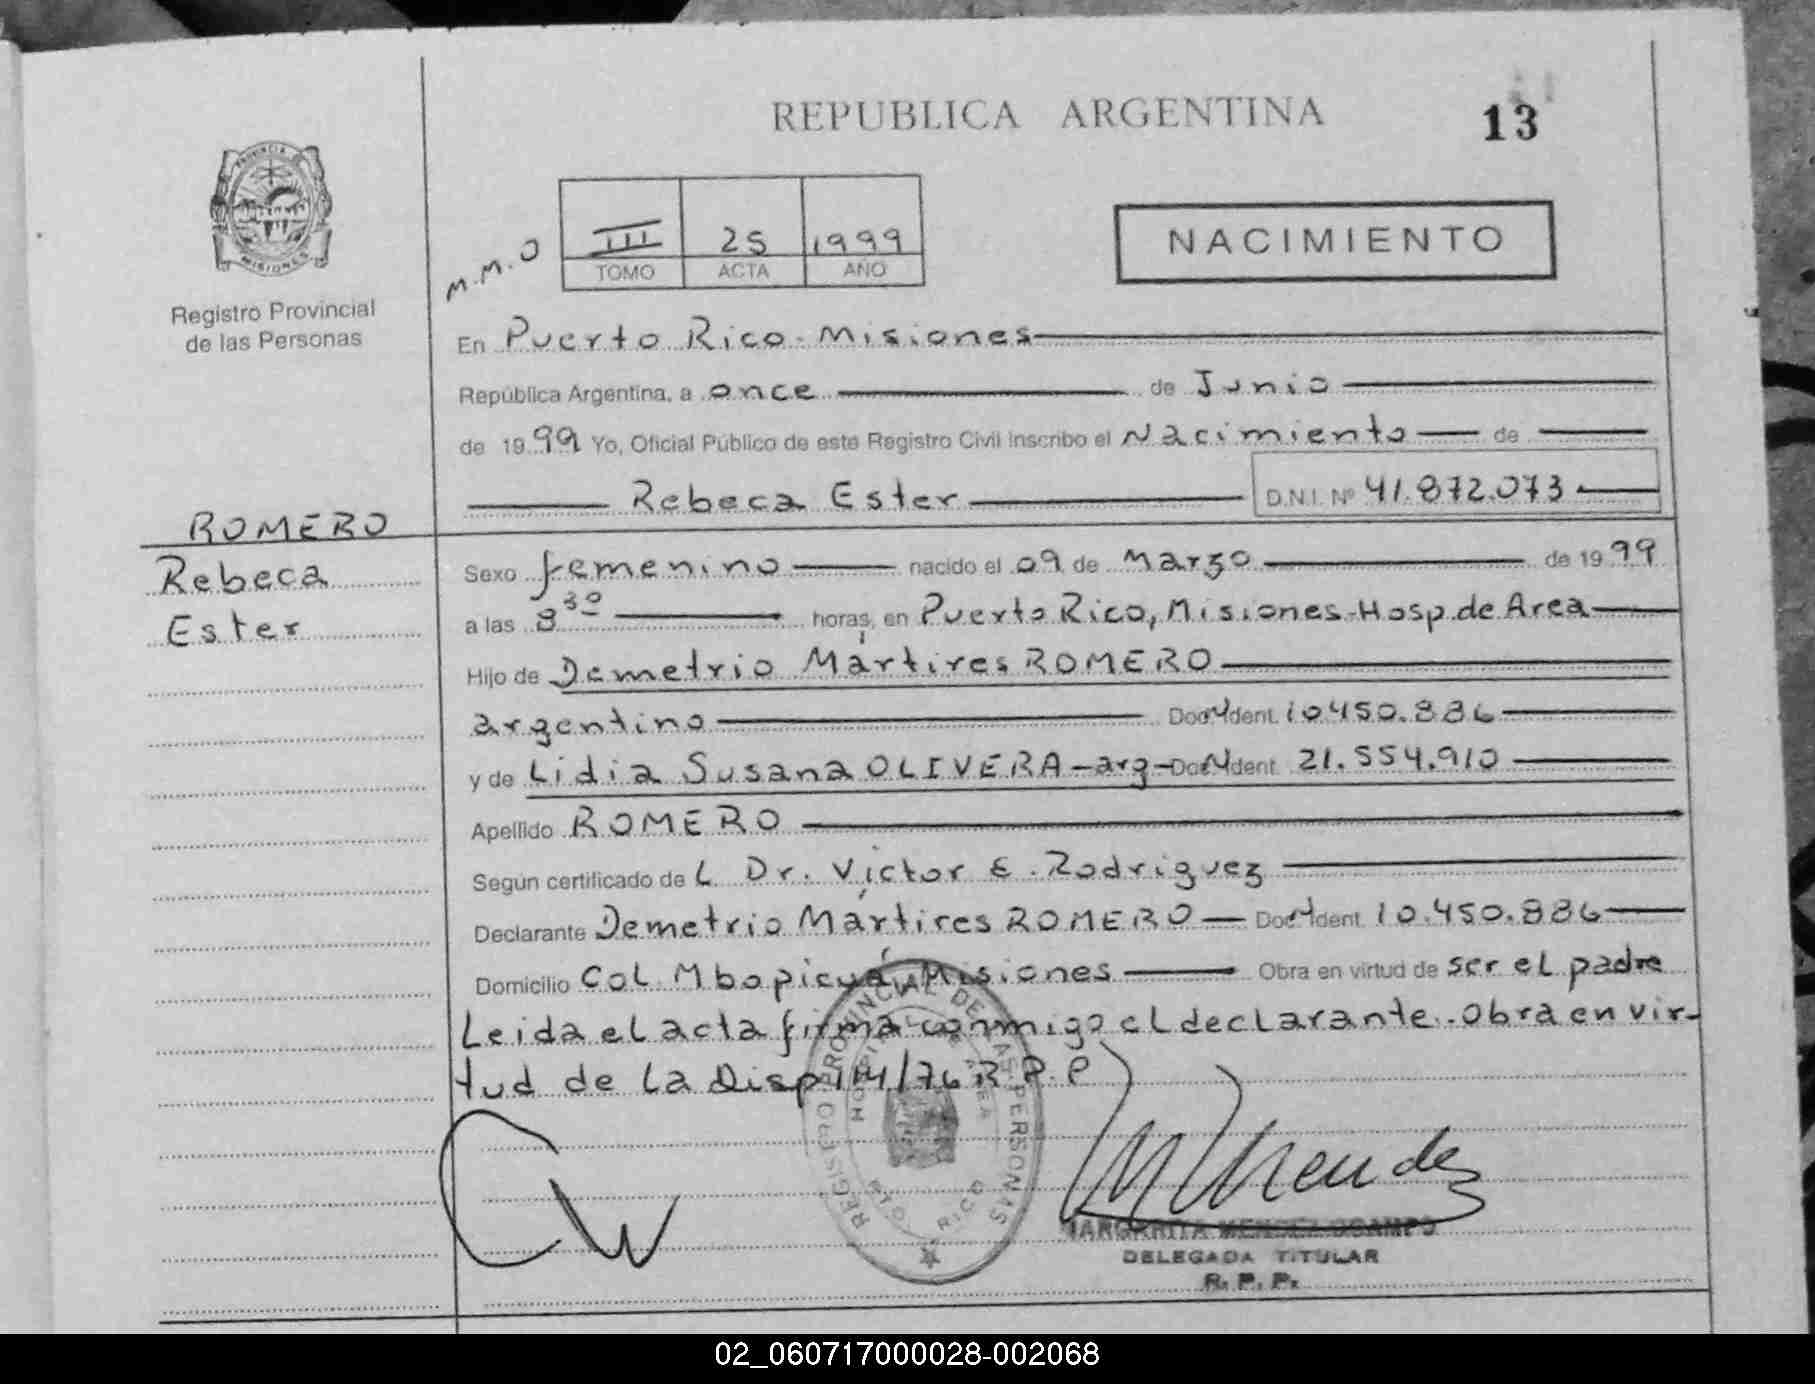 REPUBLICA ARGENTINA
13
PROVINCIA DE
MISIONES
Registro Provincial
de las Personas
M.M.O
III 25 1999
TOMO ACTA AÑO
NACIMIENTO
En Puerto Rico - Misiones
República Argentina, a once de Junio
de 19 99 Yo, Oficial Público de este Registro Civil inscribo el Nacimiento de
Rebeca Ester D.N.I. Nº 41.872.073
ROMERO
Rebeca
Ester
Sexo femenino nacido el 09 de Marzo de 19 99
a las 8 30 horas, en Puerto Rico, Misiones - Hosp. de Area
Hijo de Demetrio Mártires ROMERO
argentino Doc. Ident. 10.450.886
y de Lidia Susana OLIVERA - arg - Doc. Ident. 21.554.910
Apellido ROMERO
Según certificado de L Dr. Víctor E. Rodriguez
Declarante Demetrio Mártires ROMERO Doc. Ident. 10.450.886
Domicilio Col. Mbopicuá, Misiones Obra en virtud de ser el padre
Leida el acta firma conmigo el declarante. Obra en vir-
tud de la Disp 114/76 R.P.P
REGISTRO PROVINCIAL DE LAS PERSONAS
HOSPITAL DE AREA
PTO. RICO
M Mendez
MARGARITA MENDEZ OCAMPO
DELEGADA TITULAR
R. P. P.
02_060717000028-002068